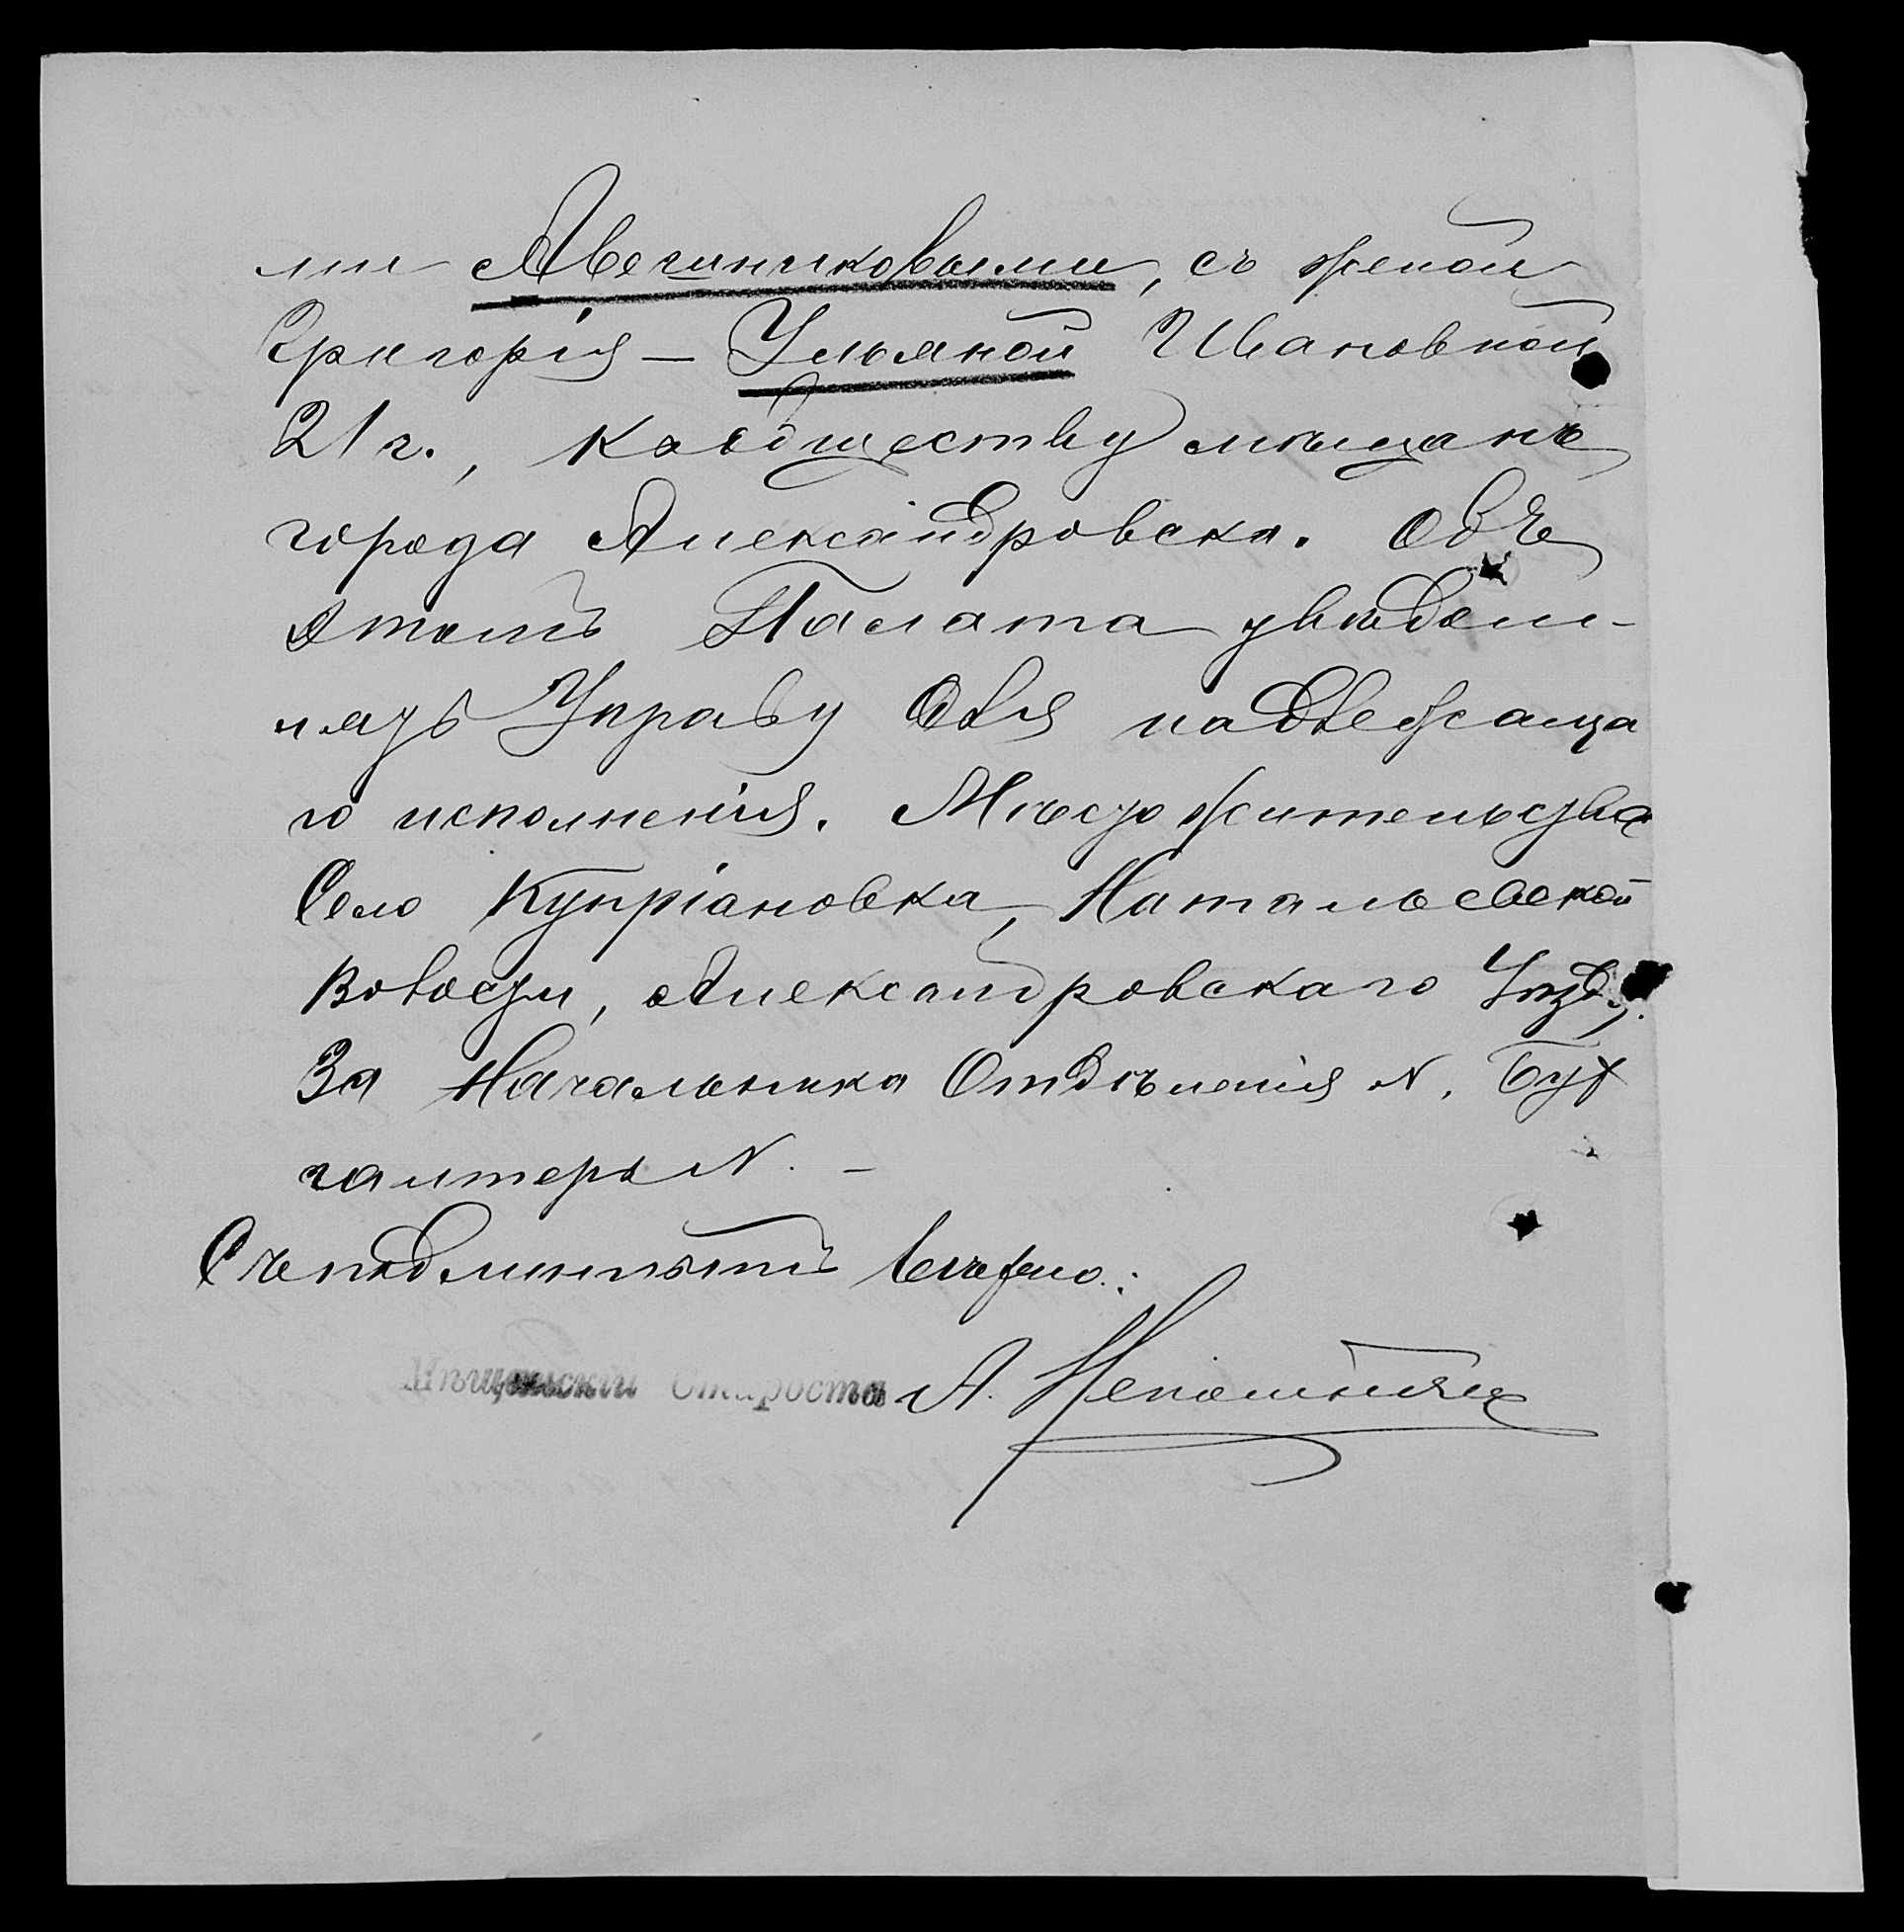 ми Авечниковыми, съ женой
Григорія — Ульяной Ивановной
21 г., къ обществу мѣщанъ
города Александровска. Объ
этомъ Палата увѣдом-
ляетъ Управу для надлежаща
го исполненія. Мѣсто жительства
Село Купріановка, Натальевской
Волости, Александровскаго Уѣзд.
За Начальника Отдѣленія N. Бух
галтеръ N. —
Съ подлиннымъ вѣрно:
Мѣщанскій Староста А.